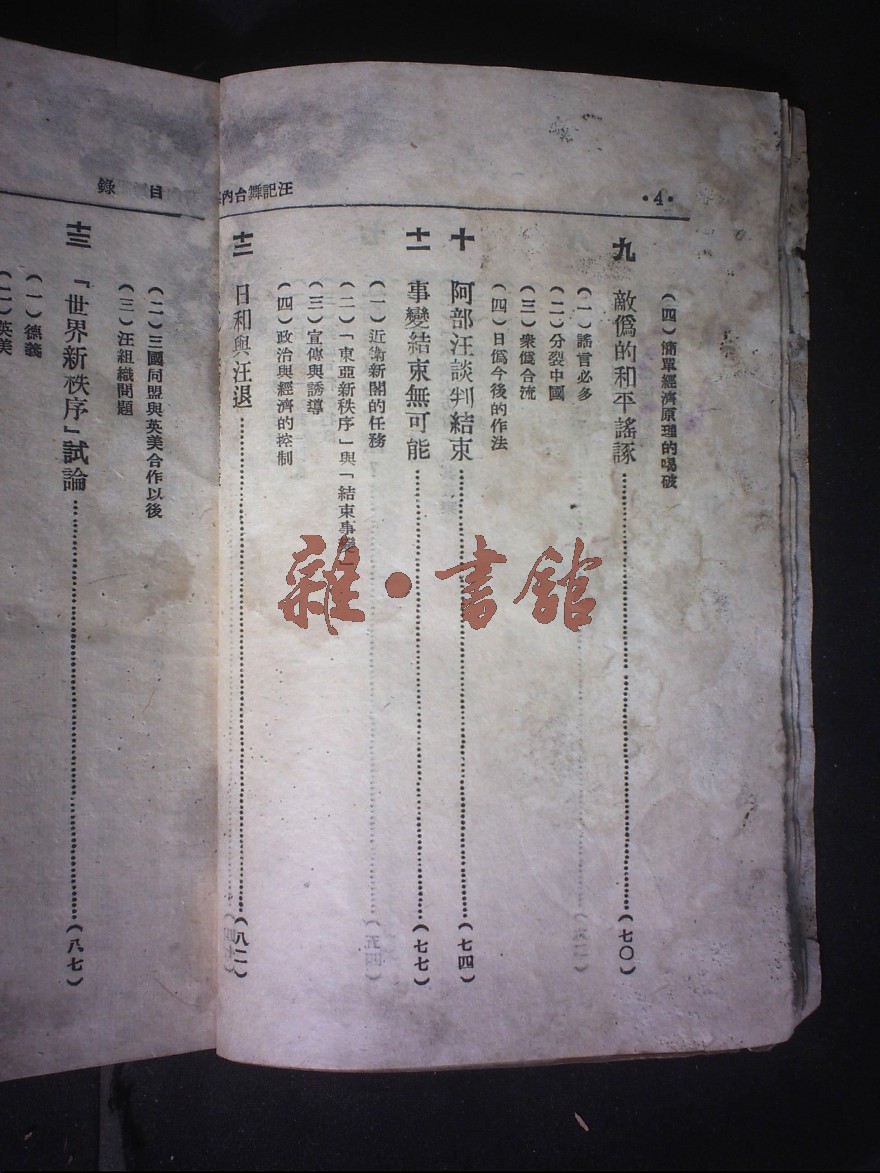 •4•
汪記舞台內
(四)簡單經濟原理的喝破
九 敵僞的和平謠諑……(七〇)
(一)謠言必多
(二)分裂中國
(三)衆僞合流
(四)日僞今後的作法
十 阿部汪談判結束……(七四)
十一 事變結束無可能……(七七)
(一)近衛新閣的任務
(二)「東亞新秩序」與「結束事變」
(三)宣傳與誘導
(四)政治與經濟的控制
十二 日和與汪退……(八二)
目錄
(二)三國同盟與英美合作以後
(三)汪組織問題
十三 「世界新秩序」試論……(八七)
(一)德義
(二)英美
雜·書館